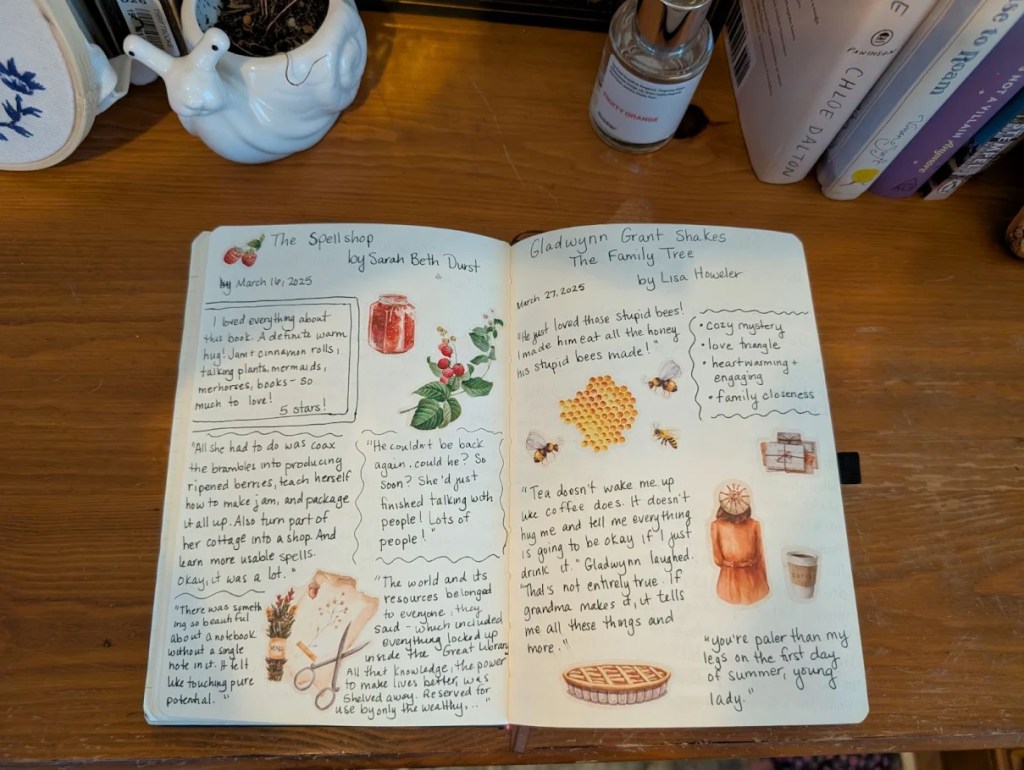 The Spellshop
by Sarah Beth Durst
by March 16, 2025
I loved everything about
this book. A definite warm
hug! Jam + cinnamon rolls,
talking plants, mermaids,
merhorses, books - so
much to love!
5 stars!
"All she had to do was coax
the brambles into producing
ripened berries, teach herself
how to make jam, and package
it all up. Also turn part of
her cottage into a shop. And
learn more usable spells.
Okay, it was a lot."
"He couldn't be back
again, could he? So
soon? She'd just
finished talking with
people! Lots of
people!"
"There was someth
ing so beautiful
about a notebook
without a single
note in it. It felt
like touching pure
potential."
"The world and its
resources belonged
to everyone, they
said - which included
everything locked up
inside the Great Library
All that knowledge, the power
to make lives better, was
shelved away. Reserved for
use by only the wealthy,..."
Gladwynn Grant Shakes
The Family Tree
by Lisa Howeler
March 27, 2025
"He just loved those stupid bees!
I made him eat all the honey
his stupid bees made!"
• cozy mystery
• love triangle
• heartwarming +
engaging
• family closeness
"Tea doesn't wake me up
like coffee does. It doesn't
hug me and tell me everything
is going to be okay if I just
drink it." Gladwynn laughed.
"That's not entirely true. If
grandma makes it, it tells
me all these things and
more."
"you're paler than my
legs on the first day
of summer, young
lady."
CHLOE DALTON
PANTHEON
se to Roam
NOT A VILLAIN
Anymore